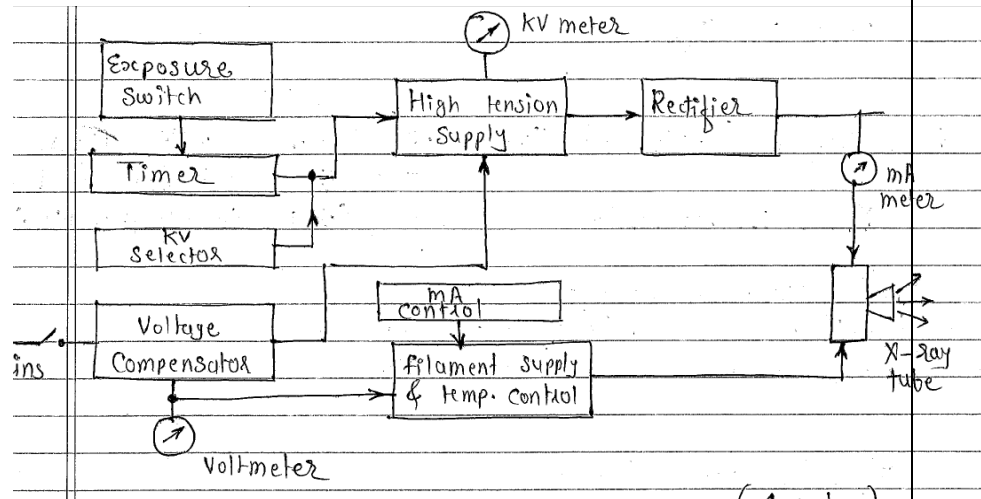 kV meter
Exposure
Switch
High tension
Supply
Rectifier
Timer
mA
meter
kV
Selector
mA
control
Voltage
Compensator
ins
filament supply
& temp. control
X-ray
tube
Voltmeter